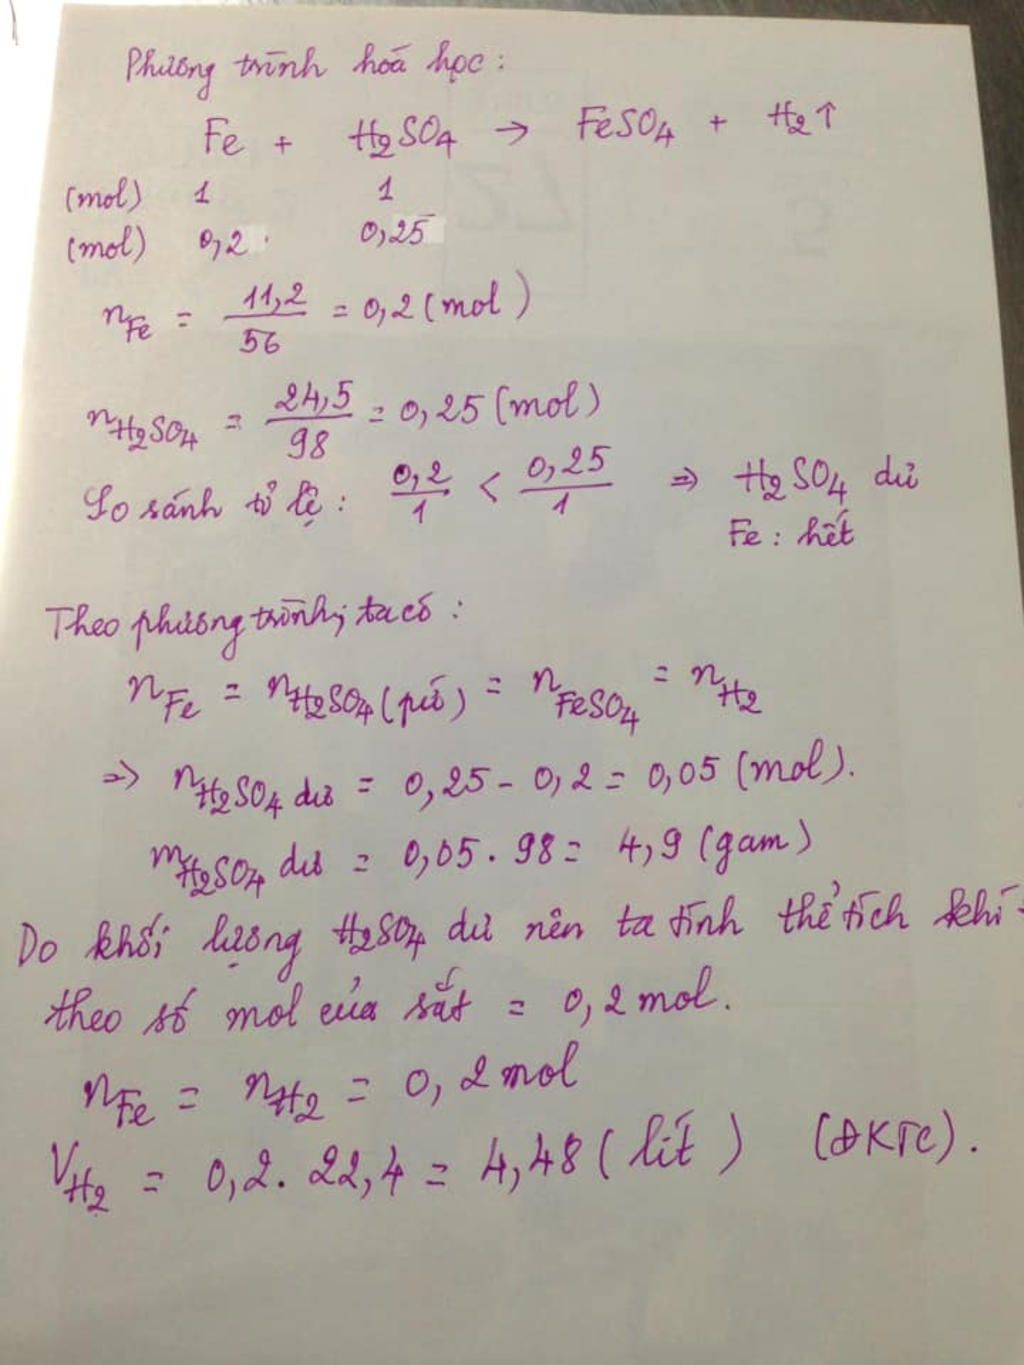 Phương trình hoá học:
Fe + H₂SO₄ → FeSO₄ + H₂↑
(mol) 1 1
(mol) 0,2 0,25
n_Fe = 11,2/56 = 0,2 (mol)
n_H₂SO₄ = 24,5/98 = 0,25 (mol)
So sánh tỉ lệ: 0,2/1 < 0,25/1 ⇒ H₂SO₄ dư
Fe: hết
Theo phương trình, ta có:
n_Fe = n_H₂SO₄ (pứ) = n_FeSO₄ = n_H₂
⇒ n_H₂SO₄ dư = 0,25 - 0,2 = 0,05 (mol).
m_H₂SO₄ dư = 0,05 . 98 = 4,9 (gam)
Do khối lượng H₂SO₄ dư nên ta tính thể tích khí
theo số mol của sắt = 0,2 mol.
n_Fe = n_H₂ = 0,2 mol
V_H₂ = 0,2. 22,4 = 4,48 (lít) (ĐKTC).